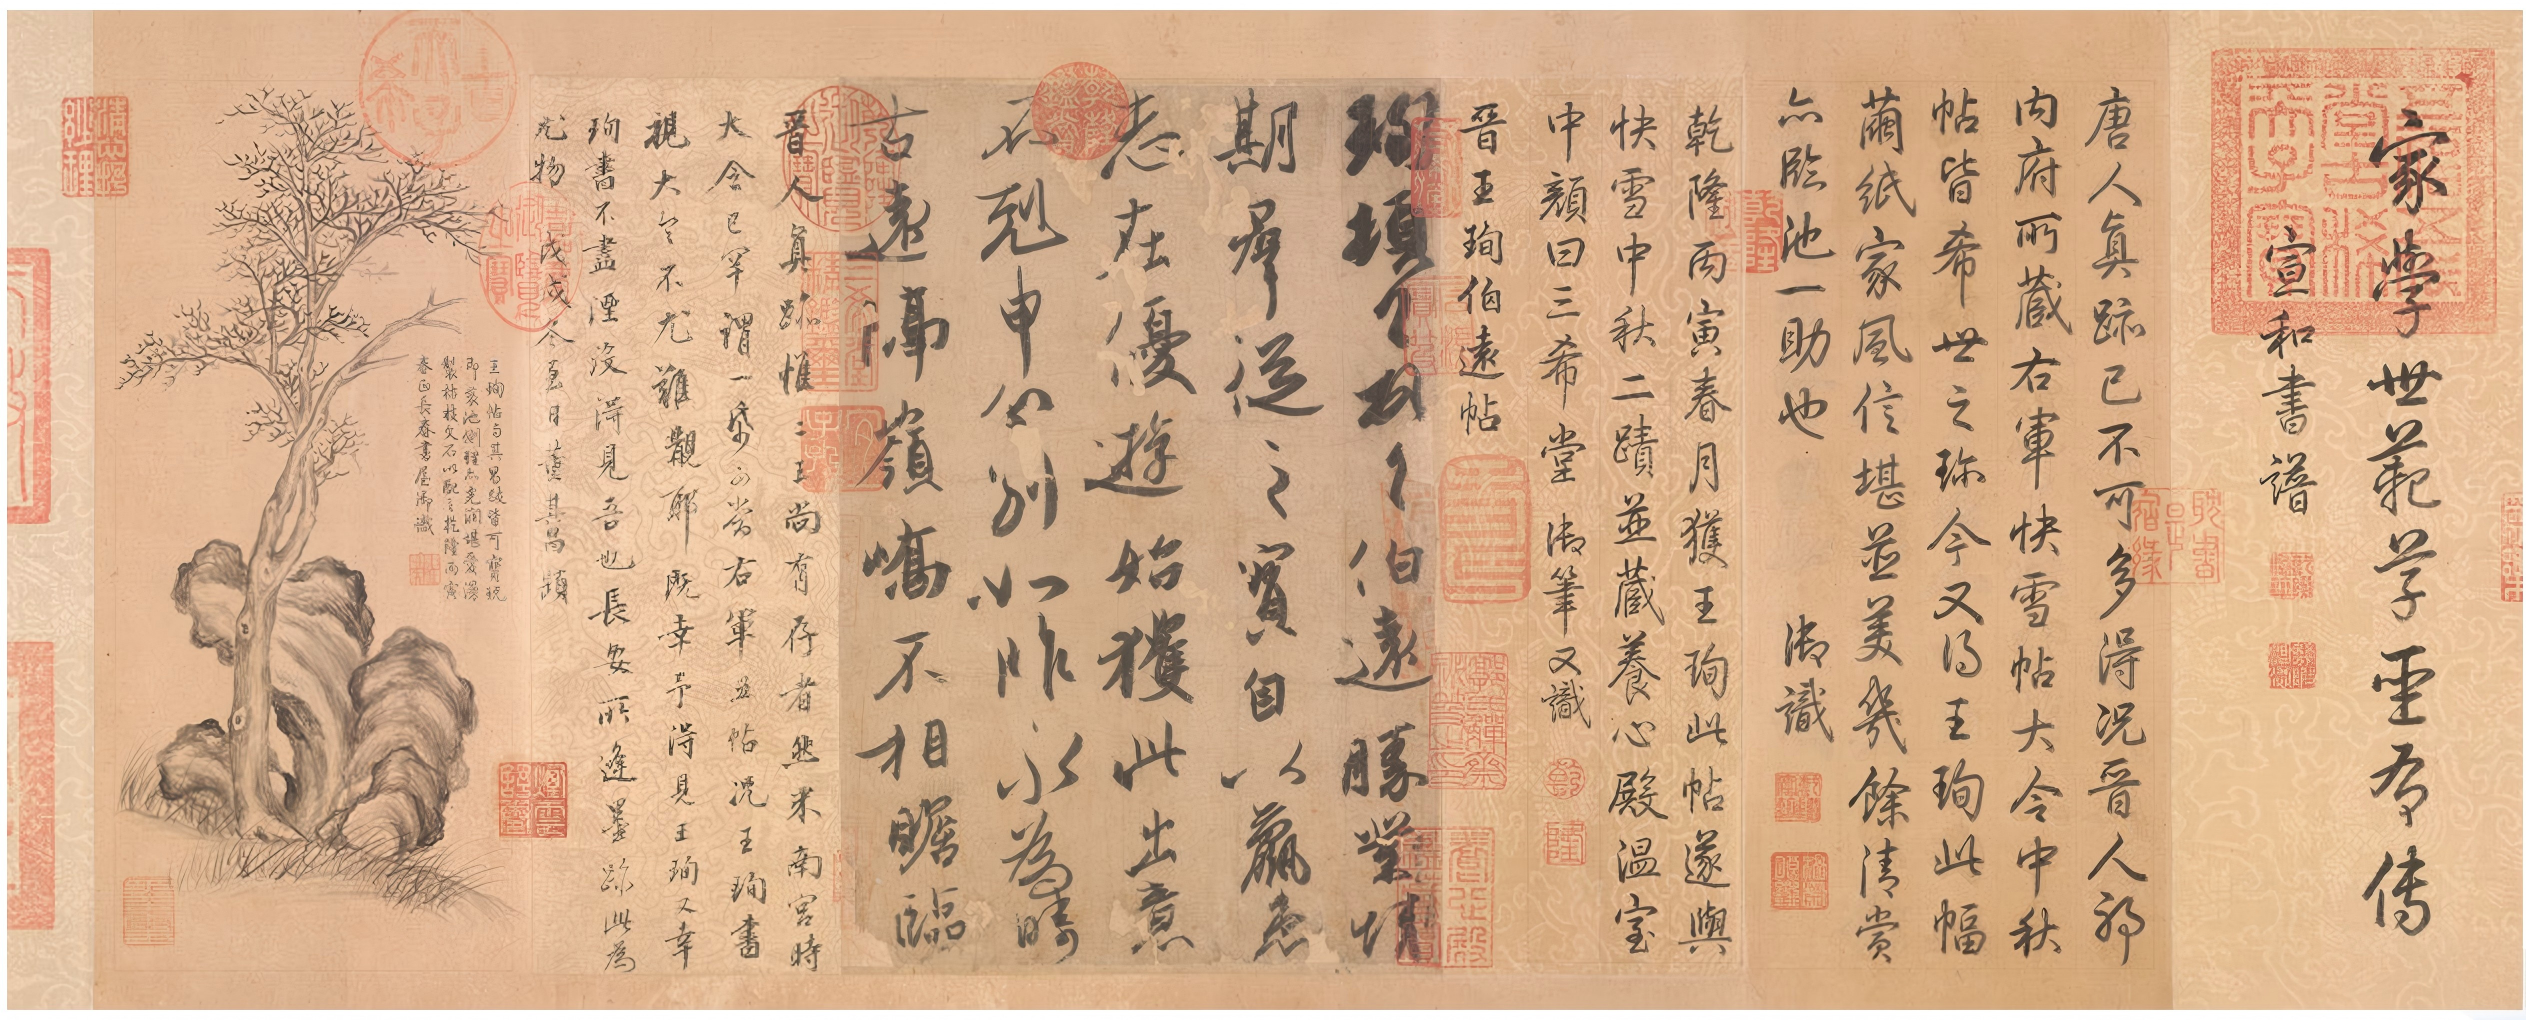 家學世範草聖有傳
宣和書譜
唐人真跡已不可多得況晉人耶
內府所藏右軍快雪帖大令中秋
帖皆希世之珎今又得王珣此幅
繭紙家風信堪並美幾餘清賞
亦臨池一助也 御識
乾隆丙寅春月獲王珣此帖遂與
快雪中秋二蹟並藏養心殿溫室
中顏曰三希堂 御筆又識
晉王珣伯遠帖
珣頓首頓首伯遠勝業情
期群從之寶自以羸患
志在優遊始獲此出意
不剋申分別如昨永為疇
古遠隔嶺嶠不相瞻臨
晉人真跡惟二王尚有存者然米南宮時
大令已罕謂一紙可當右軍五帖況王珣書
視大令不尤難覯耶既幸予得見王珣又幸
珣書不盡湮沒得見吾也長安所逢墨跡此為
尤物戊戌冬至日董其昌題
王珣帖與其昌跋皆可寶玩
即裝池側理亦光潤堪愛漫
製枯枝文石以配之乾隆丙寅
春正長春書屋御識